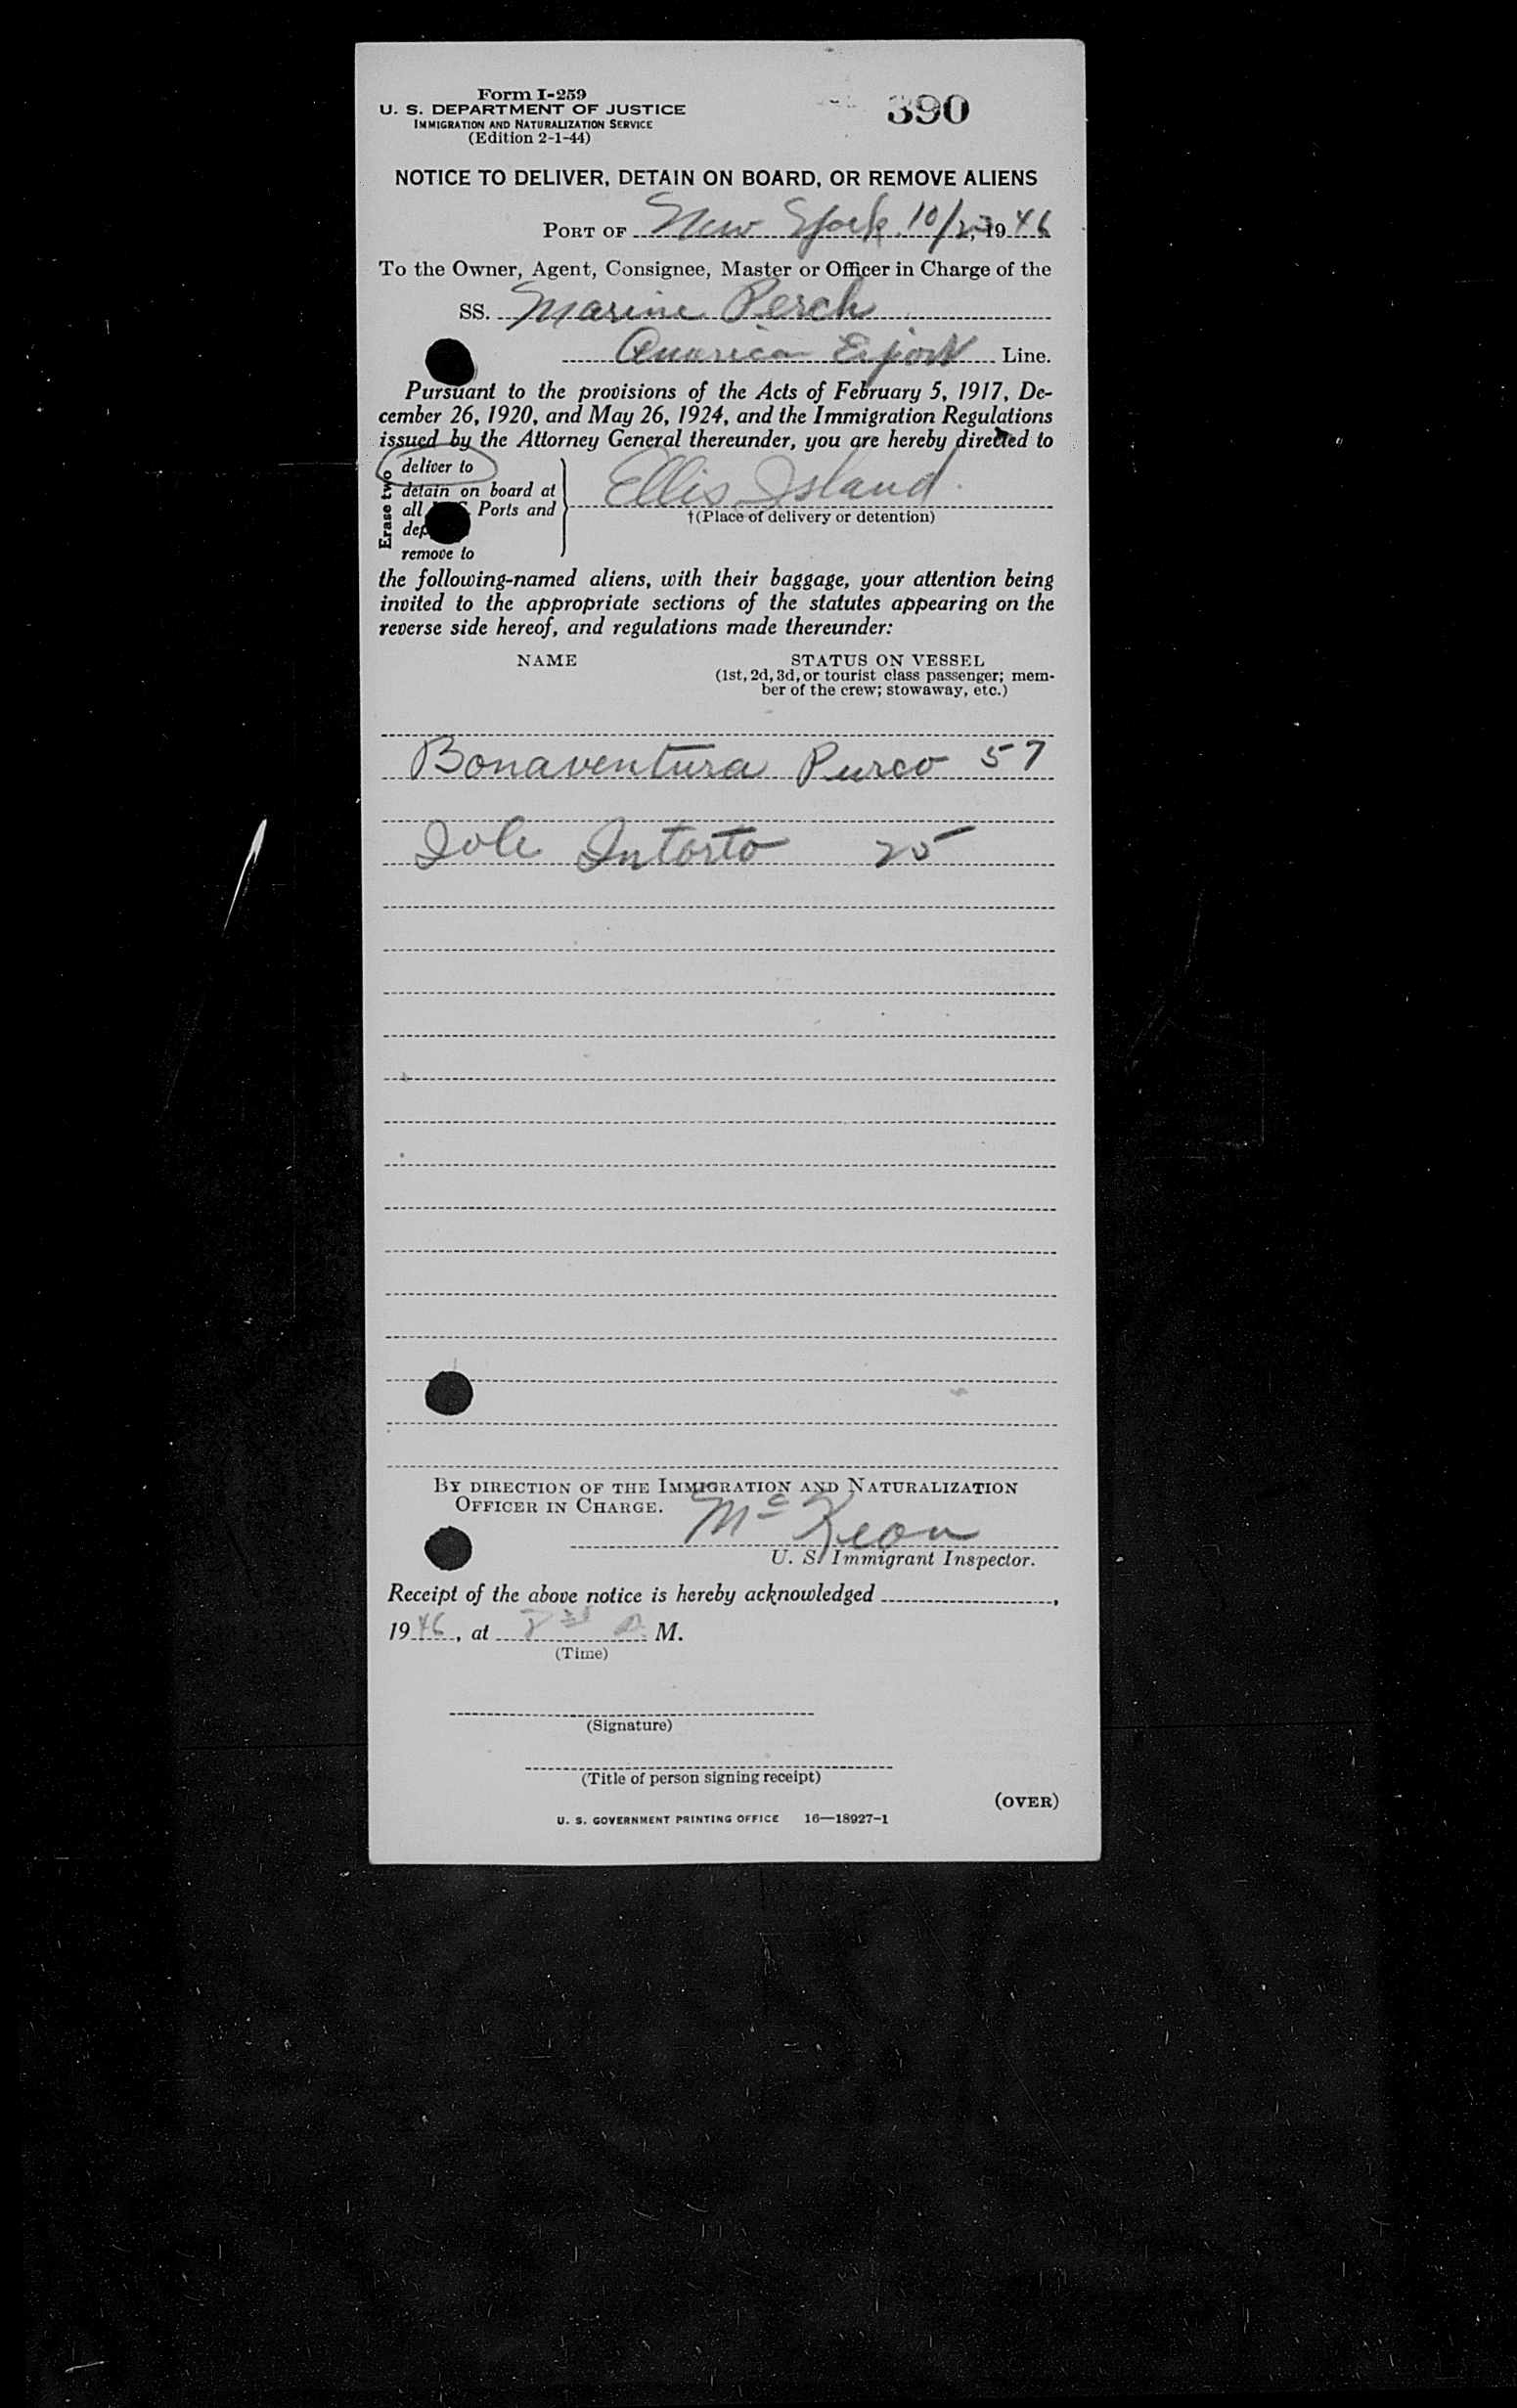 Form I-259
U. S. DEPARTMENT OF JUSTICE
IMMIGRATION AND NATURALIZATION SERVICE
(Edition 2-1-44)
390
NOTICE TO DELIVER, DETAIN ON BOARD, OR REMOVE ALIENS
PORT OF New York, 10/23, 1946
To the Owner, Agent, Consignee, Master or Officer in Charge of the
SS. Marine Perch
American Export Line.
Pursuant to the provisions of the Acts of February 5, 1917, De-
cember 26, 1920, and May 26, 1924, and the Immigration Regulations
issued by the Attorney General thereunder, you are hereby directed to
Erase two
deliver to
detain on board at
all Ports and
remove to
Ellis Island.
†(Place of delivery or detention)
the following-named aliens, with their baggage, your attention being
invited to the appropriate sections of the statutes appearing on the
reverse side hereof, and regulations made thereunder:
NAME STATUS ON VESSEL
(1st, 2d, 3d, or tourist class passenger; mem-
ber of the crew; stowaway, etc.)
Bonaventura Purco 57
Iole Intorto 25
BY DIRECTION OF THE IMMIGRATION AND NATURALIZATION
OFFICER IN CHARGE.
McKeon
U. S. Immigrant Inspector.
Receipt of the above notice is hereby acknowledged ,
1946, at M.
(Time)
(Signature)
(Title of person signing receipt)
(OVER)
U. S. GOVERNMENT PRINTING OFFICE 16—18927-1